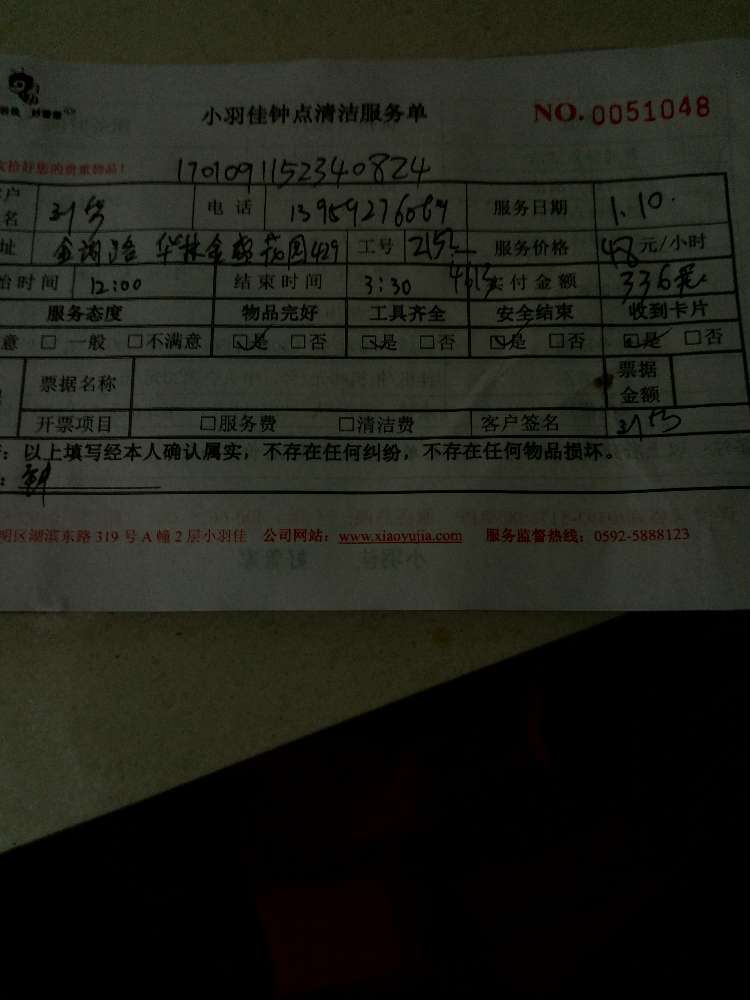 小羽佳钟点清洁服务单 NO. 0051048
拾好您的贵重物品!
1701091152340824
户
名 电话 服务日期 1.10.
址 华林金 花园429 工号 服务价格 48 元/小时
始时间 12:00 结束时间 3:30 付金额 336元
服务态度 物品完好 工具齐全 安全结束 收到卡片
意 □一般 □不满意 ☑是 □否 ☑是 □否 ☑是 □否 ☑是 □否
票据名称 票据
金额
开票项目 □服务费 □清洁费 客户签名
:以上填写经本人确认属实,不存在任何纠纷,不存在任何物品损坏。
明区湖滨东路319号A幢2层小羽佳 公司网站:www.xiaoyujia.com 服务监督热线:0592-5888123